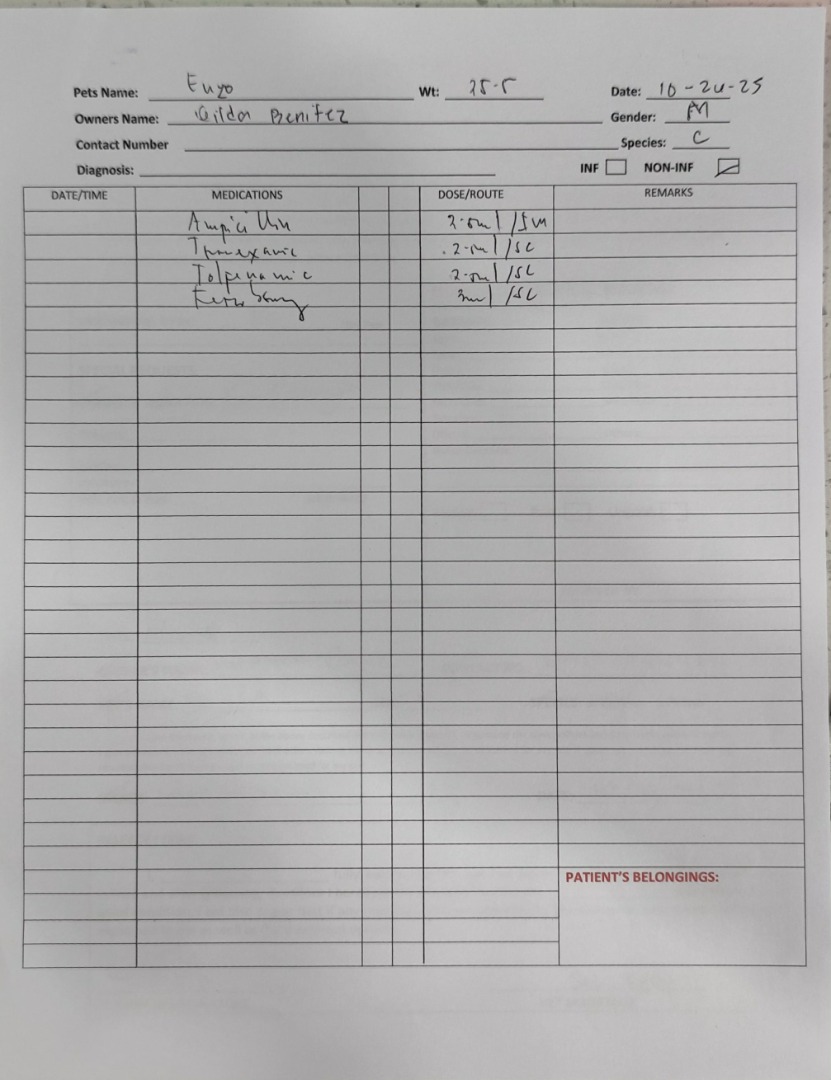 Pets Name: Enzo Wt: 25.5 Date: 10-24-25
Owners Name: Gilda Benitez Gender: M
Contact Number Species: C
Diagnosis: INF NON-INF
DATE/TIME MEDICATIONS DOSE/ROUTE REMARKS
Ampicillin /IM
Tranexamic /SC
Tolfenamic /SC
3ml /SC
PATIENT'S BELONGINGS: